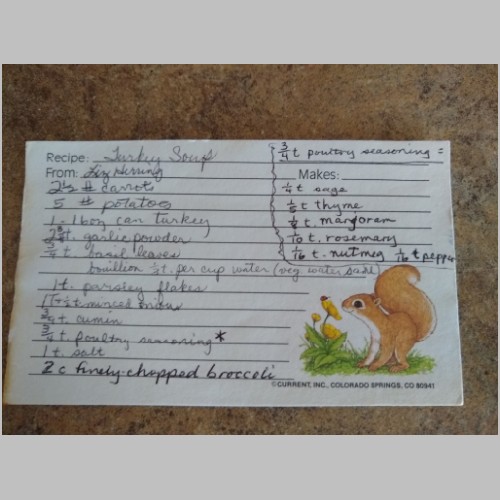 Recipe: Turkey Soup
From: Liz Herring
2 1/2 # carrots
5 # potatoes
1 - 16 oz can turkey
t. garlic powder
3/4 t. basil leaves
bouillon 1/2 t. per cup water (veg. water also)
1 t. parsley flakes
minced onion
3/4 t. cumin
3/4 t. poultry seasoning *
1 t. salt
2 c finely chopped broccoli
3/4 t poultry seasoning =
Makes:
1/4 t sage
t thyme
t. marjoram
1/10 t. rosemary
1/16 t. nutmeg 1/16 t pepper
©CURRENT, INC., COLORADO SPRINGS, CO 80941